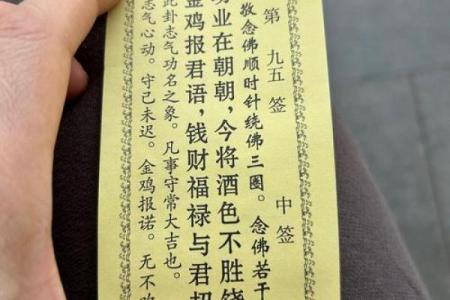 第 九五 签 中签
敬念佛顺时针绕佛三圈。念佛若干
业在朝朝,今将酒色不胜饶
金鸡报君语,钱财福禄与君招
此卦志气功名之象。凡事守常大吉也。
志气心动。守己未迟。金鸡报诺。无不